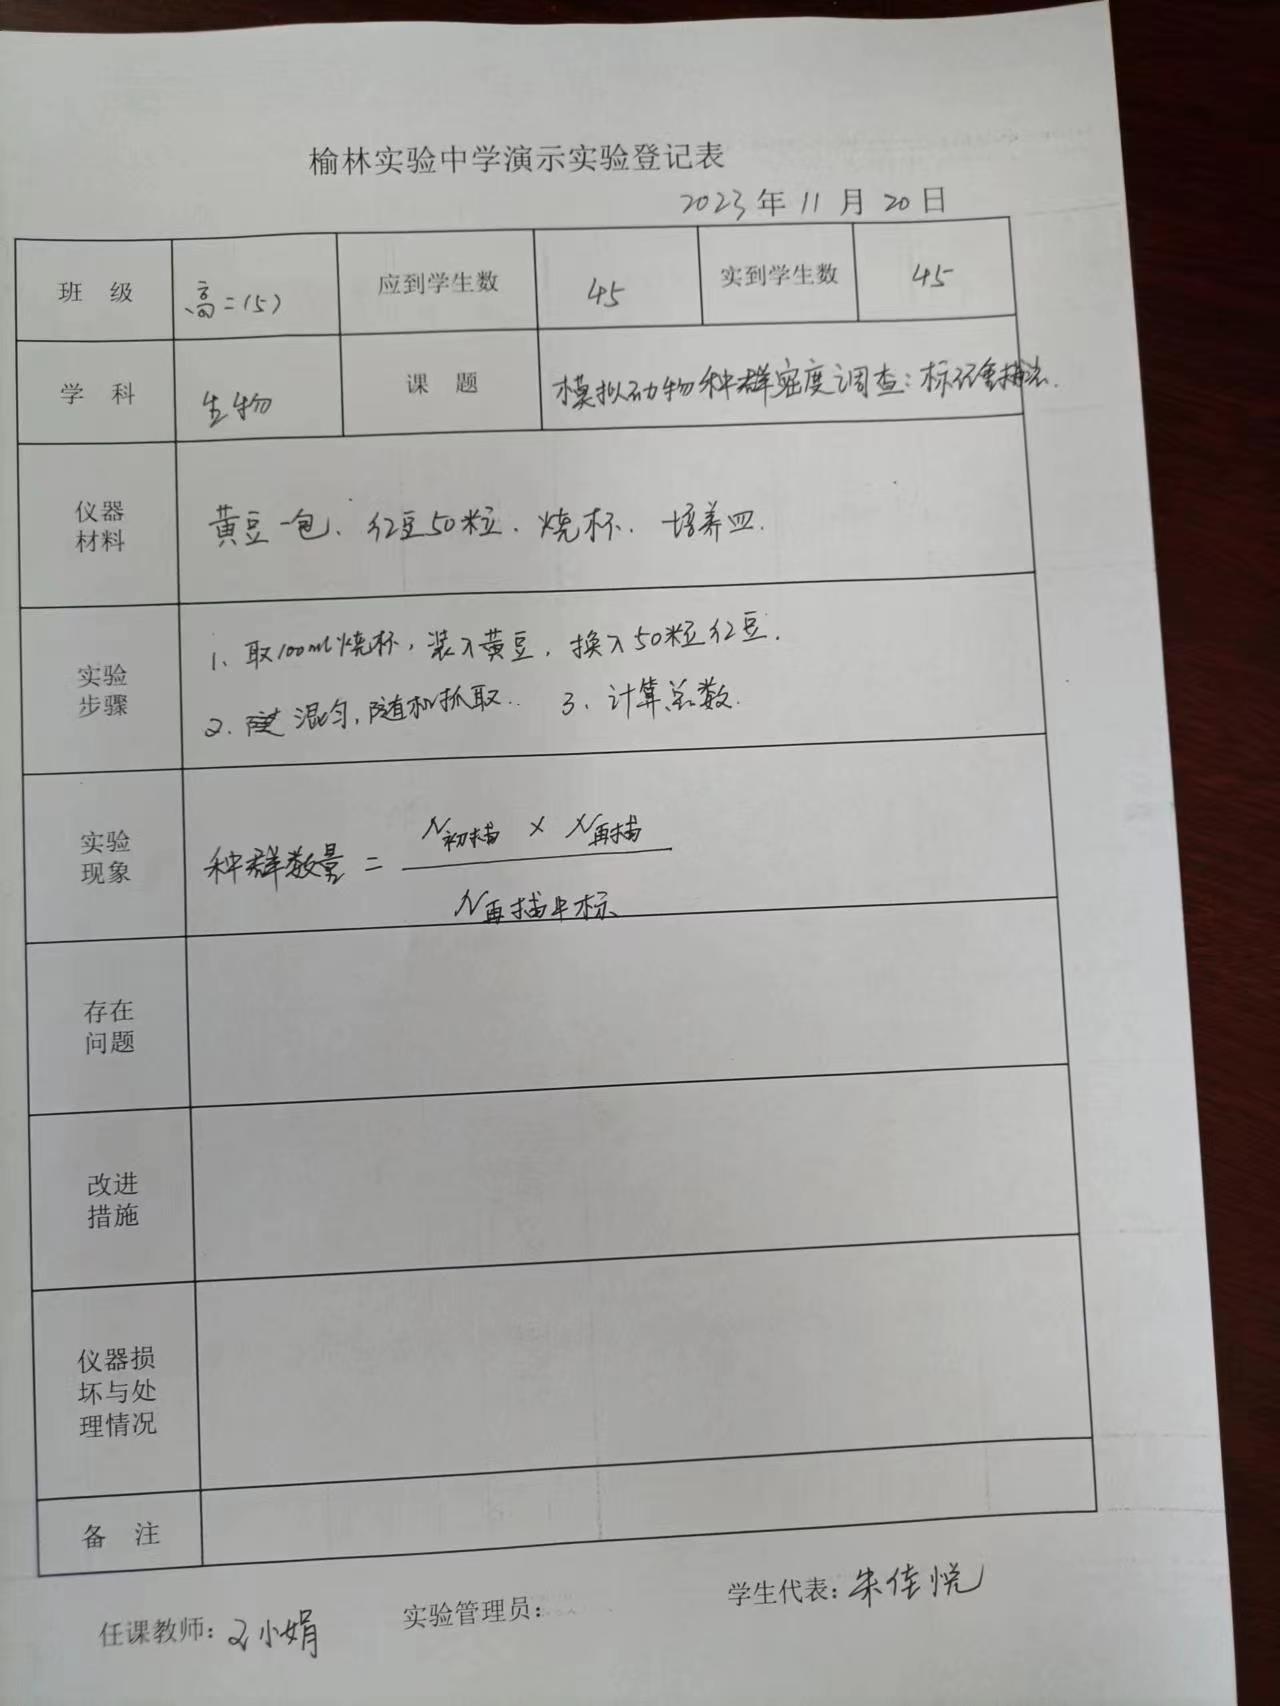 榆林实验中学演示实验登记表
2023年11月20日
班 级 高二(5) 应到学生数 45 实到学生数 45
学 科 生物 课 题 模拟动物种群密度调查:标记重捕法.
仪器
材料
黄豆一包、红豆50粒、烧杯、培养皿.
实验
步骤
1、取100ml烧杯,装入黄豆,换入50粒红豆.
2、混匀,随机抓取. 3、计算总数.
实验
现象
种群数量 = N初捕 × N再捕
N再捕中标
存在
问题
改进
措施
仪器损
坏与处
理情况
备 注
任课教师: 小娟 实验管理员: 学生代表: 朱佳悦